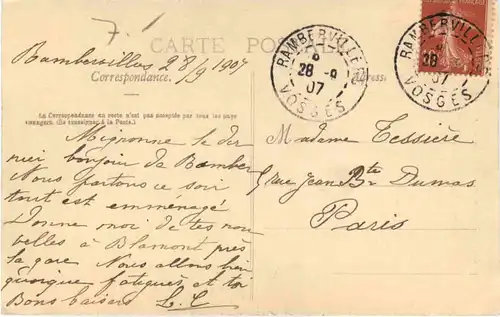 7.-
CARTE POSTALE
Rambervillers 28/9 1907
Correspondance.
Adresse.
La Correspondance au recto n'est pas acceptée par tous les pays
étrangers. (Se renseigner à la Poste.)
RAMBERVILLERS
28 -9
07
VOSGES
RAMBERVILLERS
28
07
VOSGES
Mignonne le der
nier bonjour de Ramber
Nous partons ce soir
tout est emménagé
Donne moi de tes nou
velles à Blamont près
la gare Nous allons bien
quoique fatigués, et toi
Bons baisers L. C.
Madame Tessière
5 rue Jean Bte Dumas
Paris